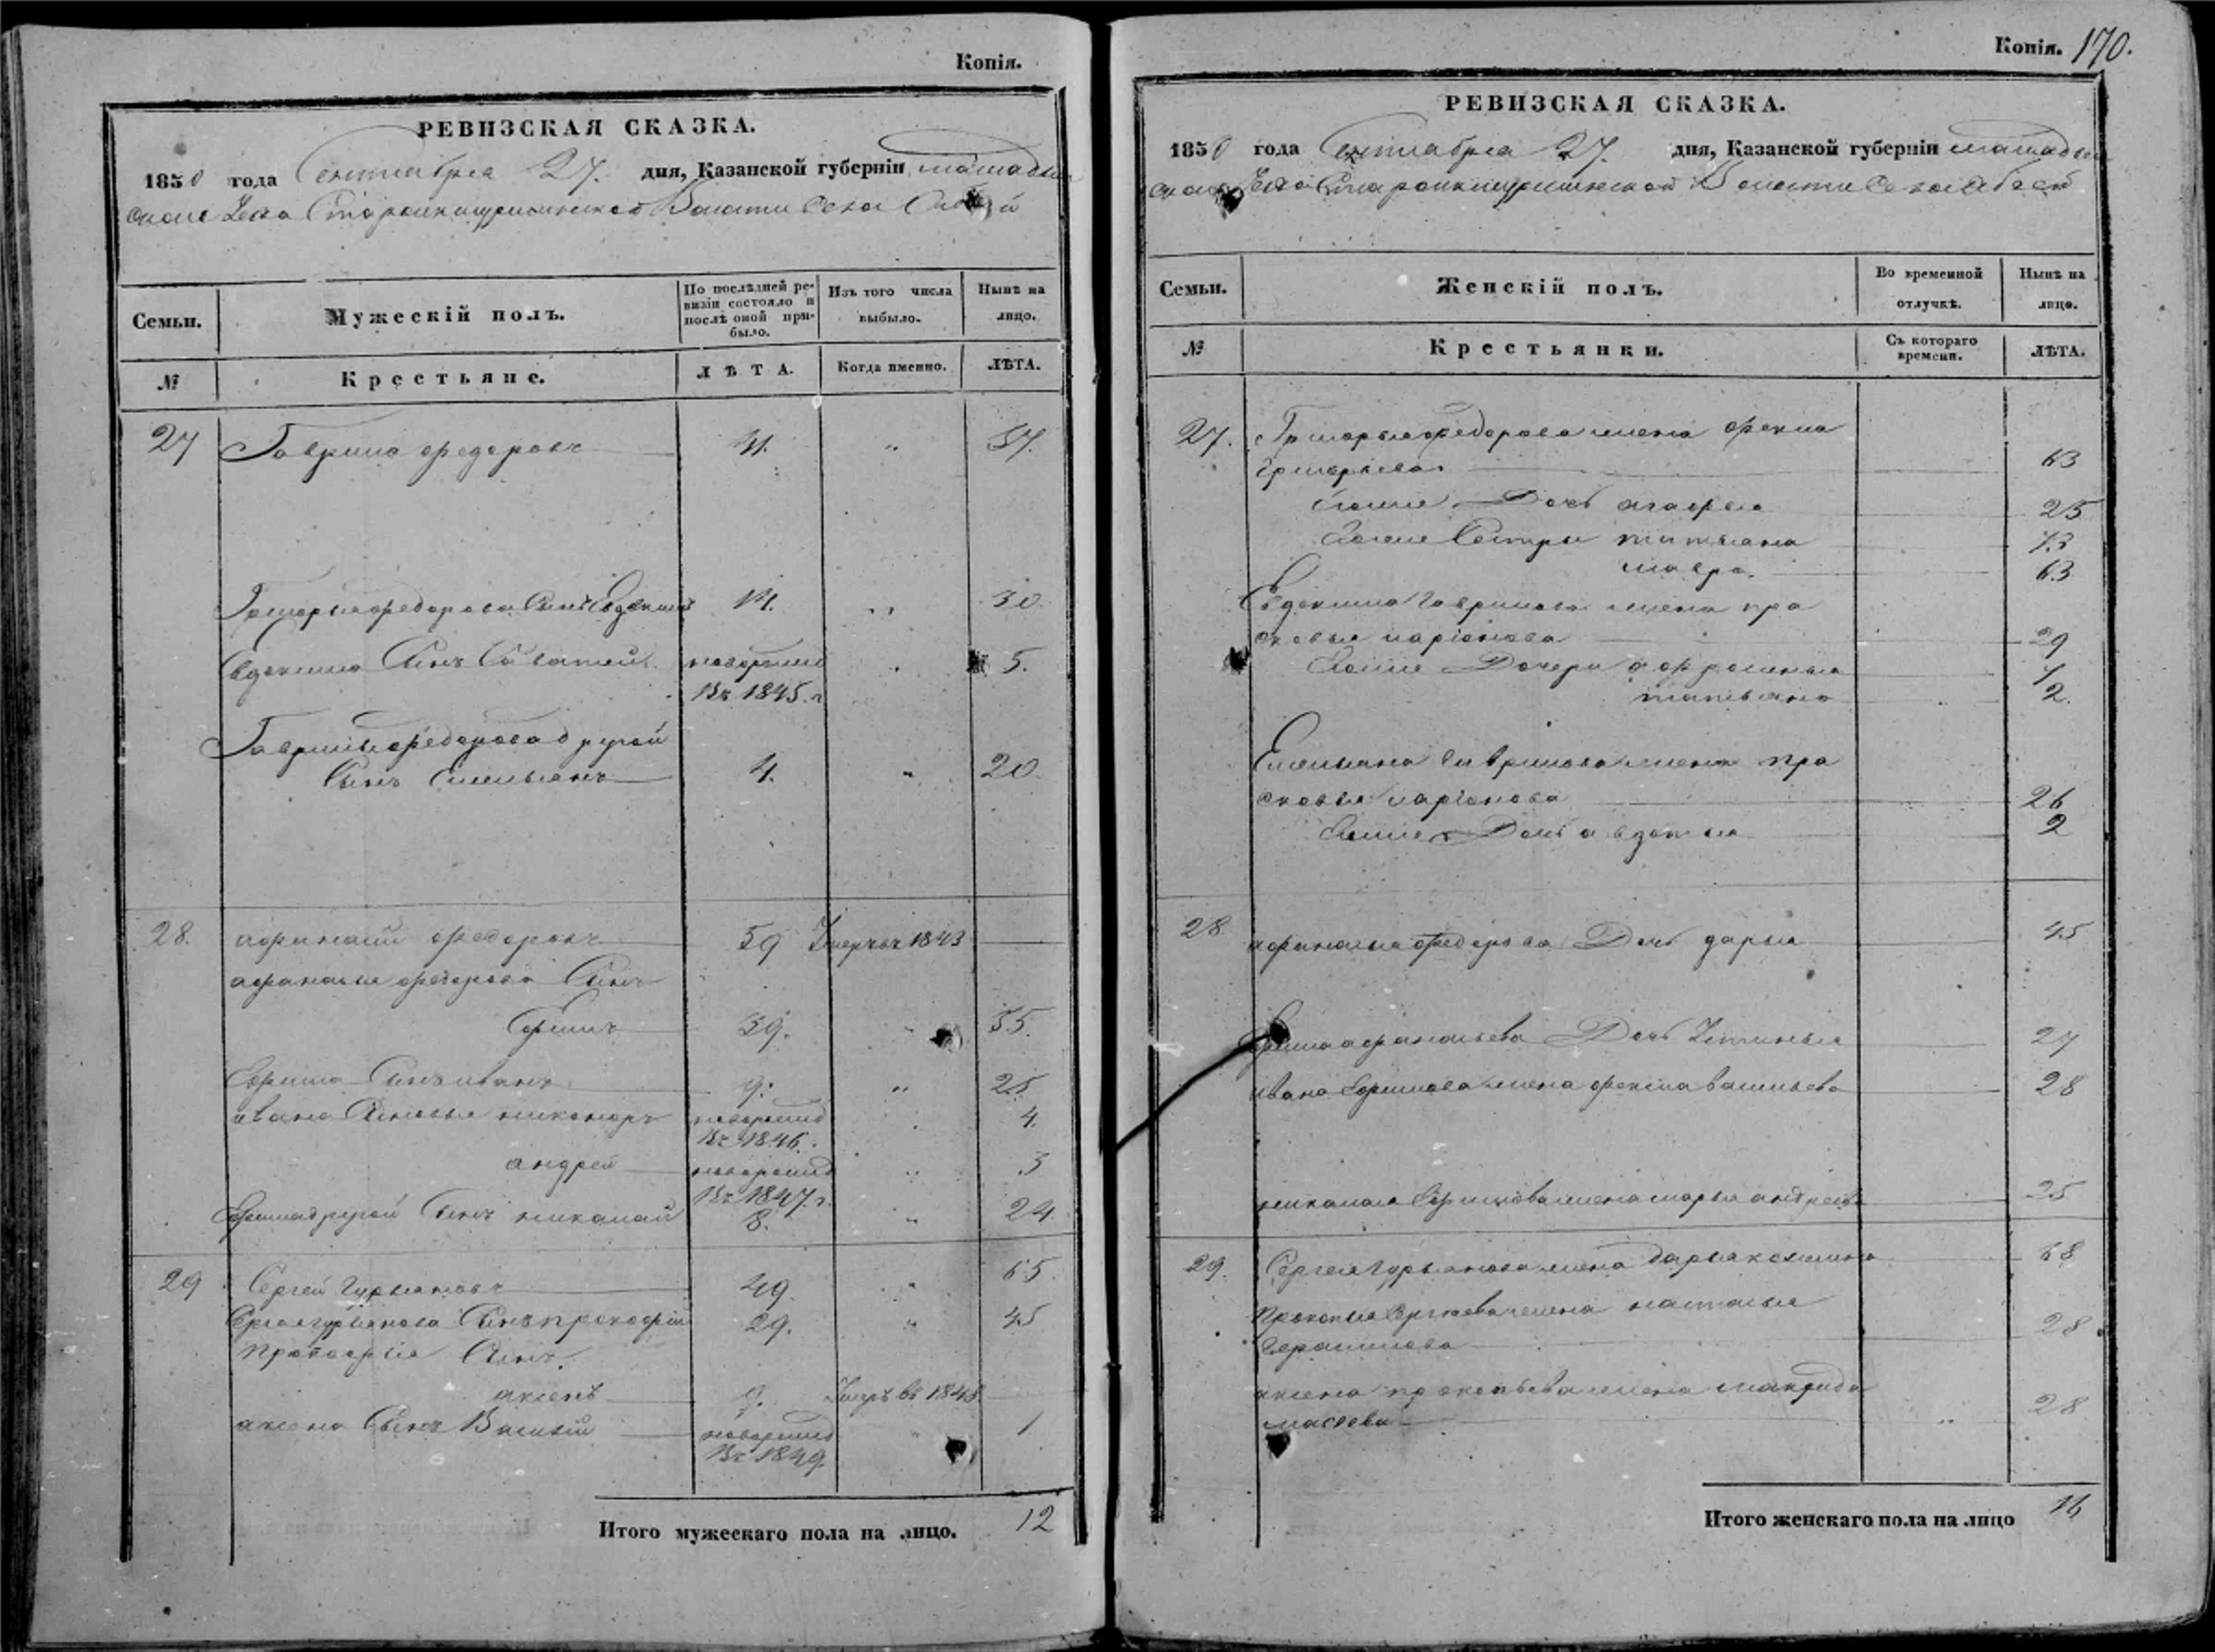 Копія.
РЕВИЗСКАЯ СКАЗКА.
1850 года Сентября 27. дня, Казанской губерніи мамадыш
скаго Уезда Старокищринской Волости Села
Семьи. Мужескій полъ. По послѣдней ревизіи состояло и послѣ оной прибыло. Изъ того числа выбыло. Нынѣ на лицо.
№ Крестьяне. ЛѢТА. Когда именно. ЛѢТА.
27 Гаврило федоровъ 41. " 57.
федорова Сынъ Евдокимъ 14. " 30.
Евдокима Сынъ Саватей новорожд " 5.
Въ 1845. г
Гаврилы федорова другой
Сынъ Емельянъ 4. " 20.
28. афанасий федоровъ 59 Умеръ въ 1843
афанасья федорова Сынъ
Ефимъ 39. " 55.
Ефима Сынъ иванъ 9. " 25.
ивана Сыновья никоноръ новорожд 4.
Въ 1846.
андрей новорожд " 3
Въ 1847. г.
Ефима другой Сынъ николай 8. " 24.
29 Сергей Гурьяновъ 49. " 65.
Сергея гурьянова Сынъ прокофий 29. " 45
прокофыя Сынъ.
аксенъ 9. Умеръ въ 1848
аксена Сынъ Василий новорожд " 1
Въ 1849.
Итого мужескаго пола на лицо. 12
Копія. 170.
РЕВИЗСКАЯ СКАЗКА.
1850 года Сентября 27. дня, Казанской губерніи мамадыш
скаго Уезда Старокищринской Волости Села
Семьи. Женскій полъ. Во временной отлучкѣ. Нынѣ на лицо.
№ Крестьянки. Съ котораго времени. ЛѢТА.
27. федорова жена фекла
григорьева 63
Дочь агафья 25
Сестры татьяна 73
мавра. 63
Евдокима Гаврилова жена пра
сковья ларіонова 29
Дочери афросинья 7
татьяна 2.
Емельяна Гаврилова жена пра
сковья ларіонова 26
Дочь авдотья 2
28 афанасья федорова Дочь дарья 45
Ефима афанасьева Дочь Устинья 27
ивана Ефимова жена фекла васильева 28
николая Ефимова жена марья андреева 25
29. Сергея Гурьянова жена дарья козмина 68
Прокопья Сергеева жена настасья
Герасимова 28
аксена прокопьева жена
28
Итого женскаго пола на лицо 16